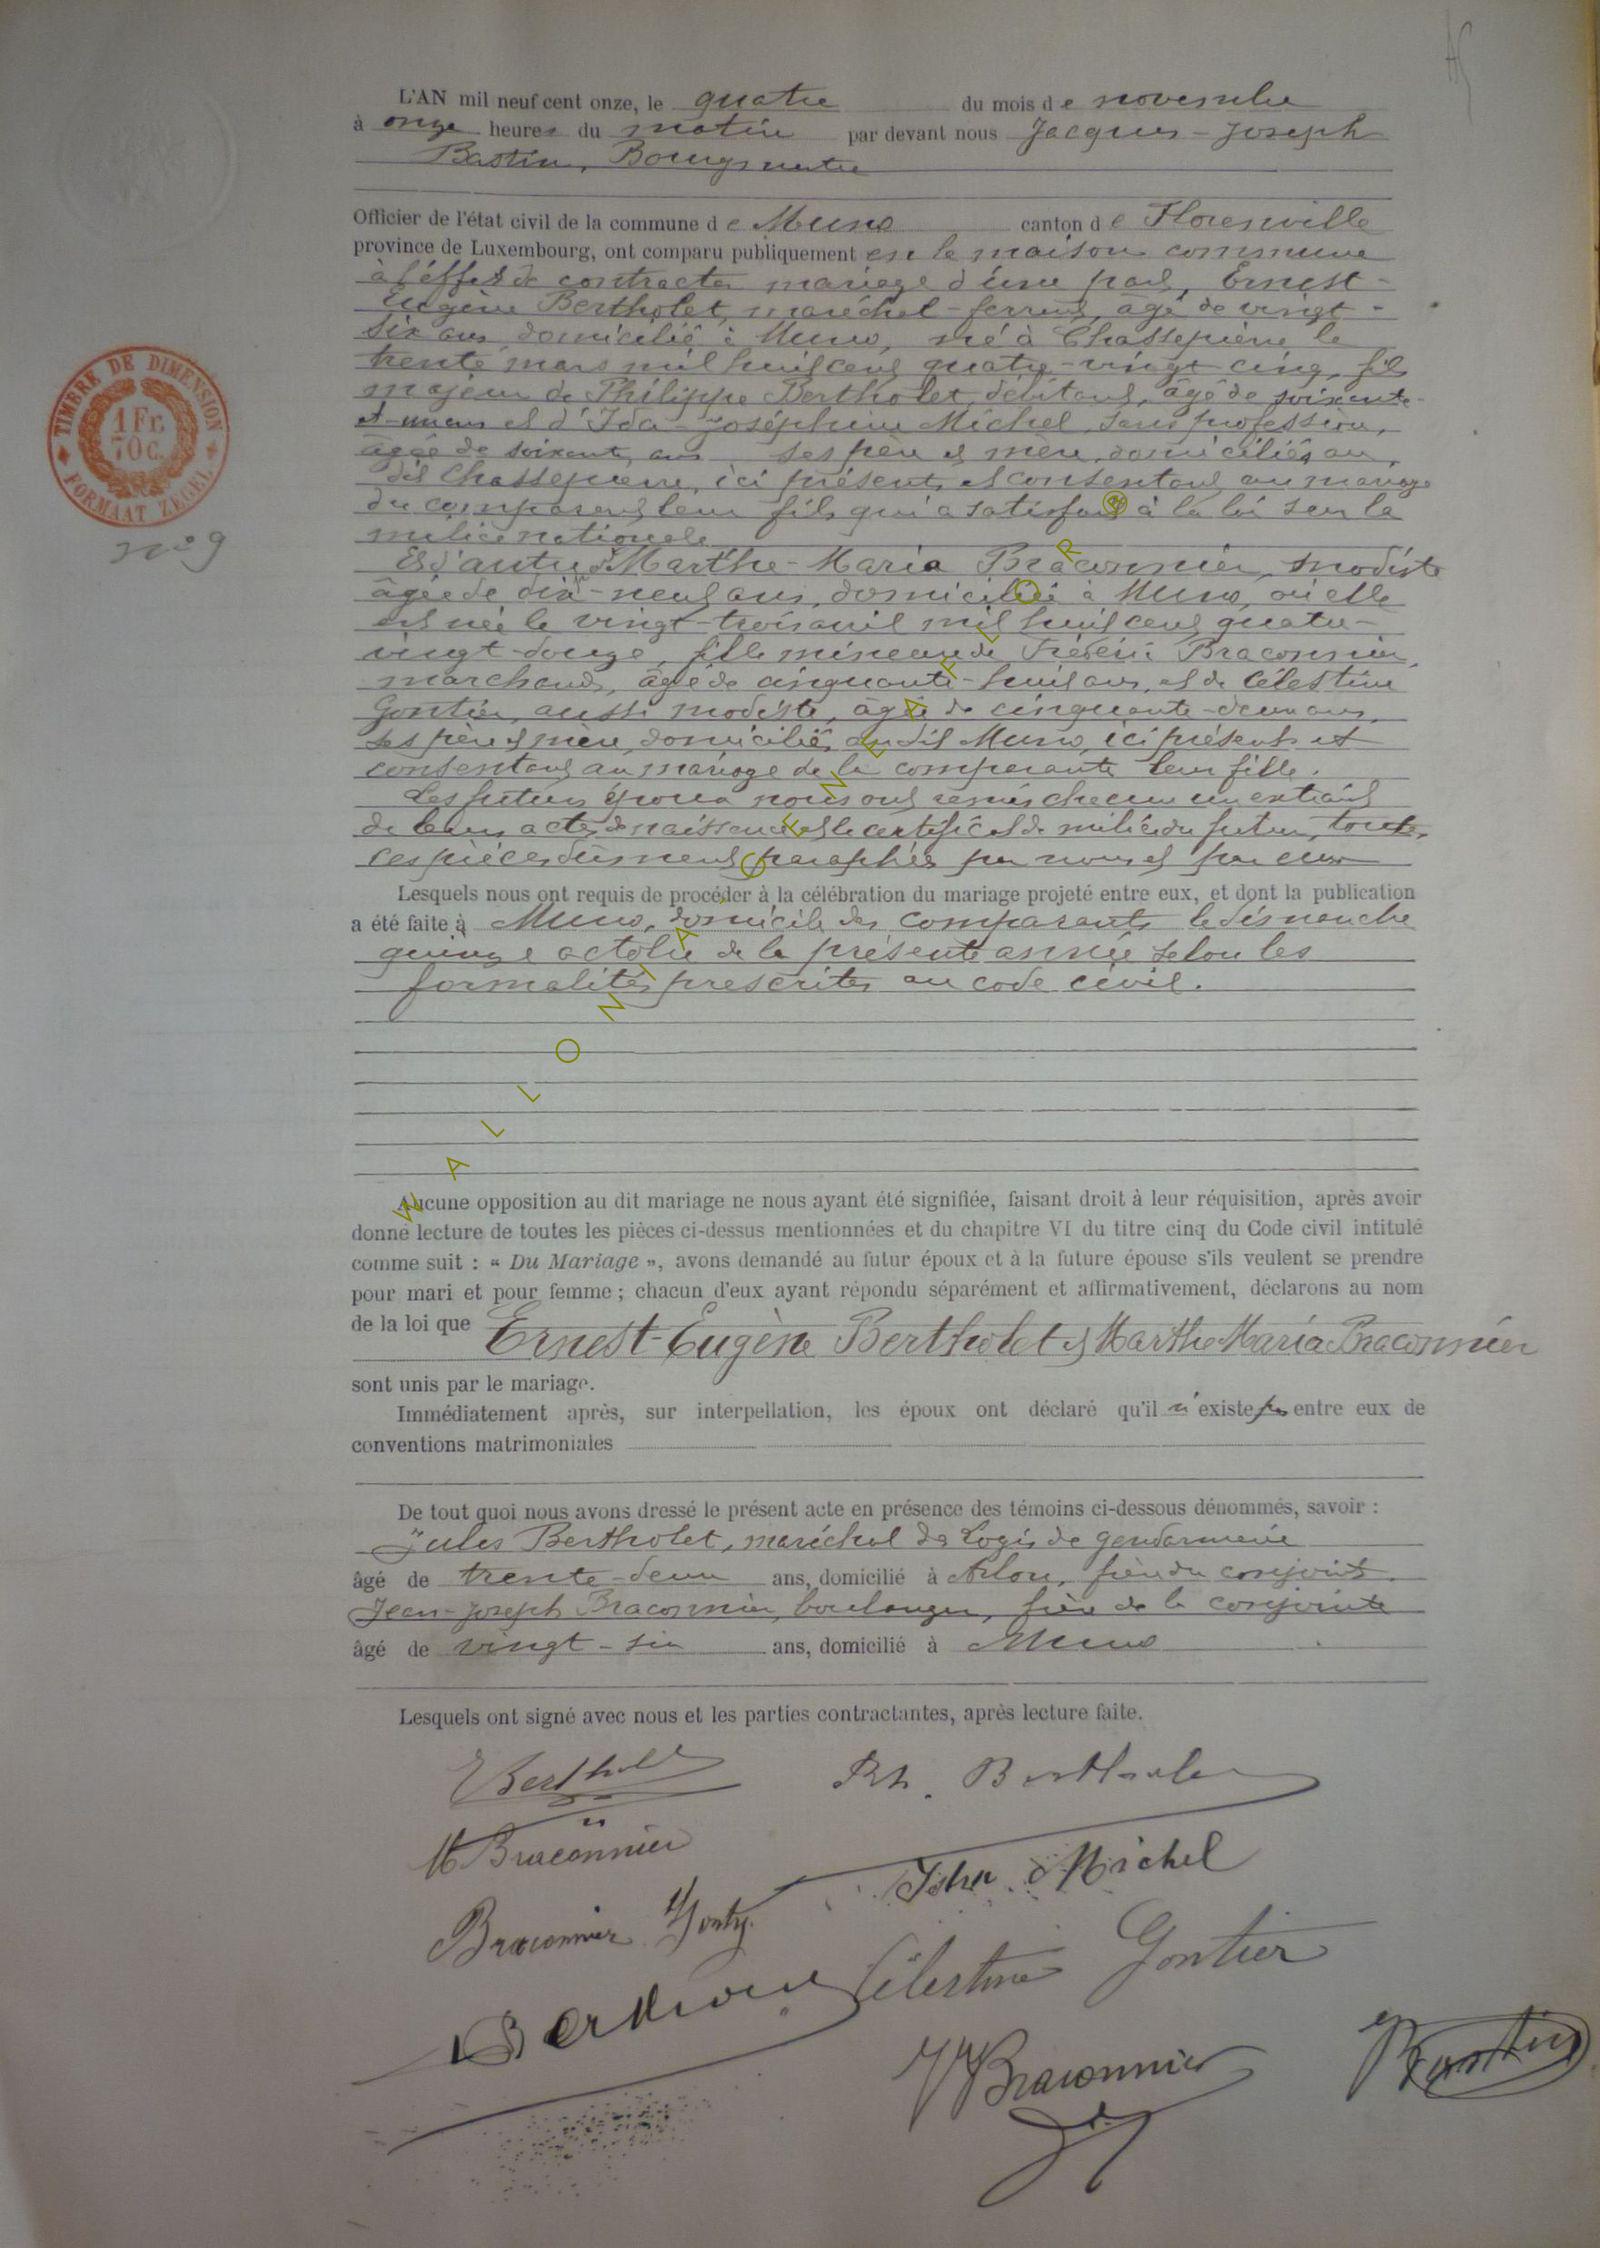 L'AN mil neuf cent onze, le quatre du mois de novembre
à onze heures du matin par devant nous Jacques-Joseph
Bastin, Bourgmestre
Officier de l'état civil de la commune de Muno canton de Florenville
province de Luxembourg, ont comparu publiquement en la maison commune
à l'effet de contracter mariage d'une part, Ernest-
Eugène Bertholet, maréchal-ferrant, âgé de vingt-
six ans, domicilié à Muno, né à Chassepierre le
trente mars mil huit cent quatre-vingt cinq, fils
majeur de Philippe Bertholet, débitant, âgé de soixante-
et-un ans et d'Ida-Joséphine Michel, sans profession,
âgée de soixante ans ses père et mère, domiciliés au
dit Chassepierre, ici présents et consentant au mariage
du comparant leur fils qui a satisfait à la loi sur la
milice nationale
Et d'autre part Marthe-Maria Braconnier, modiste
âgée de dix-neuf ans, domiciliée à Muno, où elle
est née le vingt-trois avril mil huit cent quatre-
vingt-douze, fille mineure de Frédéric Braconnier,
marchand, âgé de cinquante-huit ans, et de Célestine
Gontier, aussi modiste, âgée de cinquante-deux ans,
ses père et mère, domiciliés au dit Muno, ici présents et
consentant au mariage de la comparante leur fille.
Les futurs époux nous ont remis chacun un extrait
de leurs actes de naissance et le certificat de milice du futur, toutes
ces pièces dûment paraphées par nous et par eux
Lesquels nous ont requis de procéder à la célébration du mariage projeté entre eux, et dont la publication
a été faite à Muno, domicile des comparants le dimanche
quinze octobre de la présente année selon les
formalités prescrites au code civil.
Aucune opposition au dit mariage ne nous ayant été signifiée, faisant droit à leur réquisition, après avoir
donné lecture de toutes les pièces ci-dessus mentionnées et du chapitre VI du titre cinq du Code civil intitulé
comme suit : « Du Mariage », avons demandé au futur époux et à la future épouse s'ils veulent se prendre
pour mari et pour femme ; chacun d'eux ayant répondu séparément et affirmativement, déclarons au nom
de la loi que Ernest-Eugène Bertholet et Marthe Maria Braconnier
sont unis par le mariage.
Immédiatement après, sur interpellation, les époux ont déclaré qu'il n'existe pas entre eux de
conventions matrimoniales
De tout quoi nous avons dressé le présent acte en présence des témoins ci-dessous dénommés, savoir :
Jules Bertholet, maréchal des Logis de gendarmerie
âgé de trente-deux ans, domicilié à Arlon, frère du conjoint.
Jean-Joseph Braconnier, boulanger, frère de la conjointe
âgé de vingt-six ans, domicilié à Muno
Lesquels ont signé avec nous et les parties contractantes, après lecture faite.
E Bertholet
Ph. Bertholet
M Braconnier
Michel
Braconnier
Célestine Gontier
Braconnier
Bastin
TIMBRE DE DIMENSION
1 Fr.
70 C.
FORMAAT ZEGEL
n° 9
WALLONIA GENEAFLOR